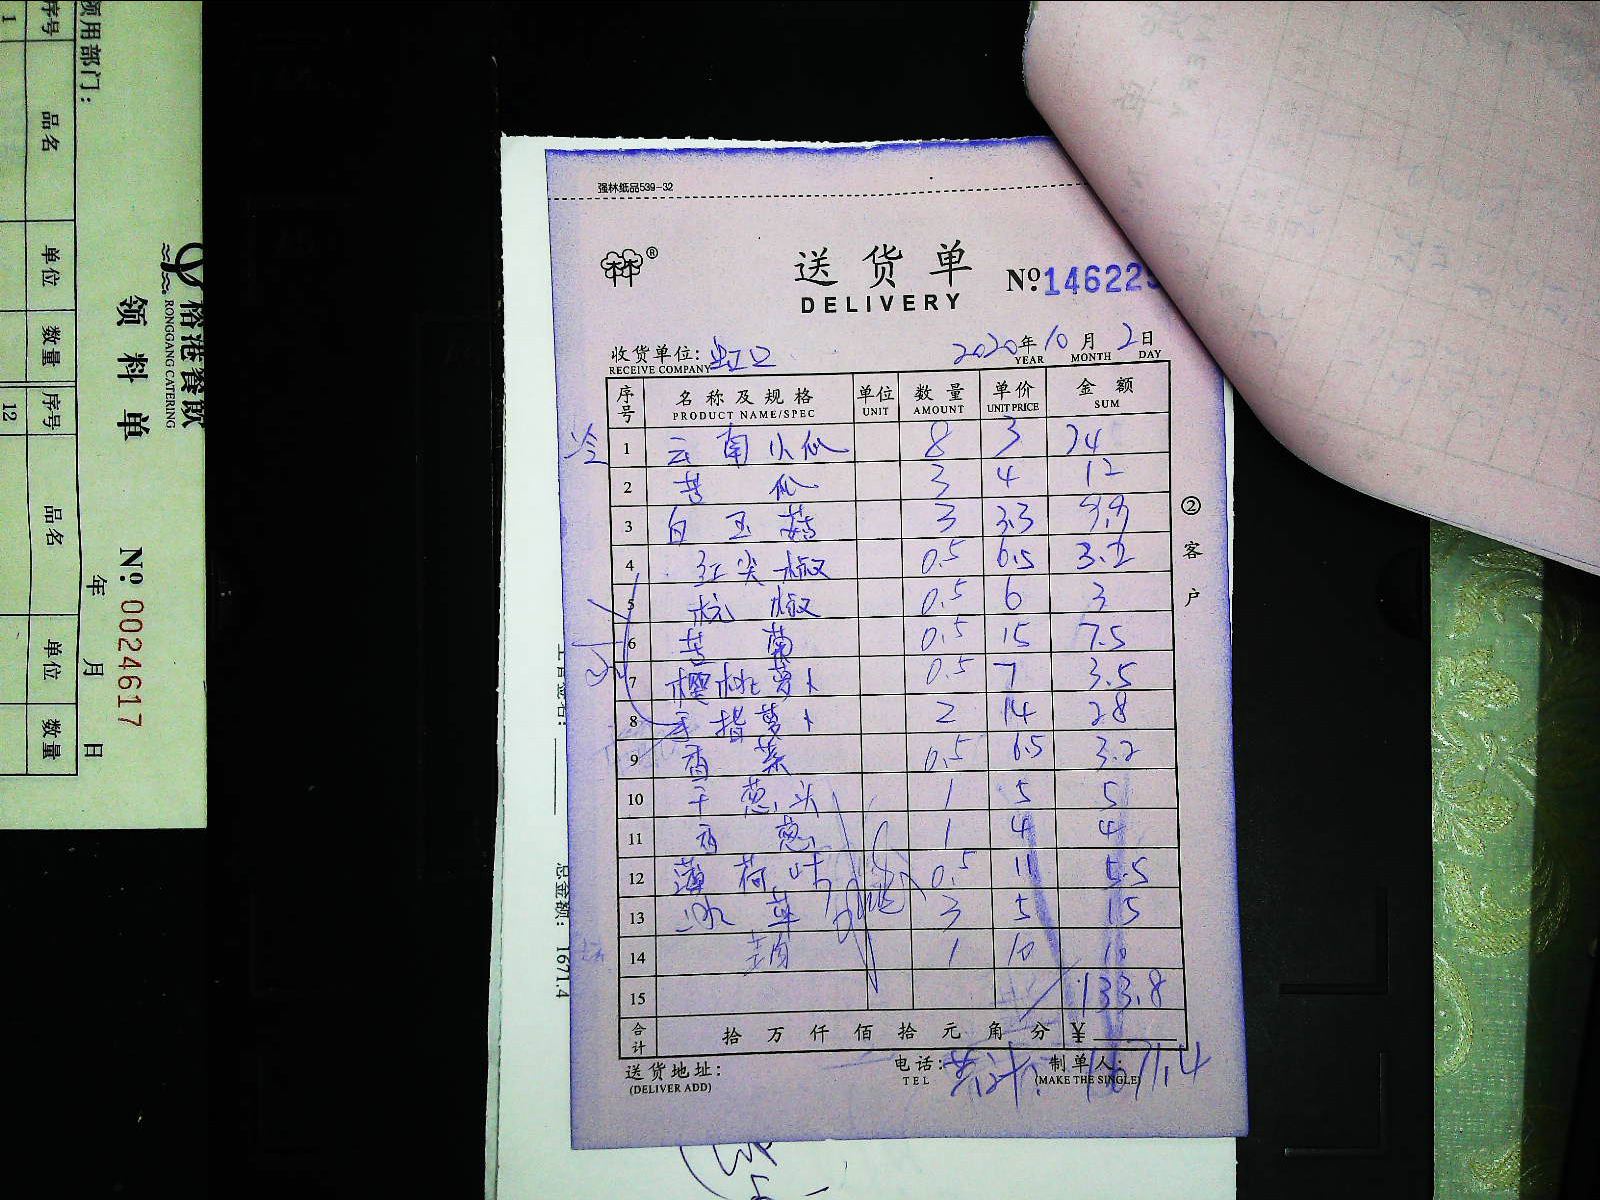 强林纸品539-32
送货单
DELIVERY
№ 146225
收货单位: 虹口 2020年10月2日
RECEIVE COMPANY YEAR MONTH DAY
序号 名称及规格 单位 数量 单价 金额
PRODUCT NAME/SPEC UNIT AMOUNT UNIT PRICE SUM
冷
1 云南小瓜 8 3 24
2 苦瓜 3 4 12
3 白玉菇 3 3.3 9.9
4 红尖椒 0.5 6.5 3.2
5 杭椒 0.5 6 3
6 苦菊 0.5 15 7.5
7 樱桃萝卜 0.5 7 3.5
8 手指萝卜 2 14 28
9 香菜 0.5 6.5 3.2
10 干葱头 1 5 5
11 香葱 1 4 4
12 薄荷叶 0.5 11 5.5
13 冰草 3 5 15
14 1 10 10
15 133.8
合计 拾万仟佰拾元角分 ¥
送货地址: 电话: 制单人:
(DELIVER ADD) TEL (MAKE THE SINGLE)
1671.4
②客户
总金额: 1671.4
裕港餐飲
RONGGANG CATERING
领料单
№ 0024617
领用部门: 年 月 日
序号 品名 单位 数量 序号 品名 单位 数量
1 12